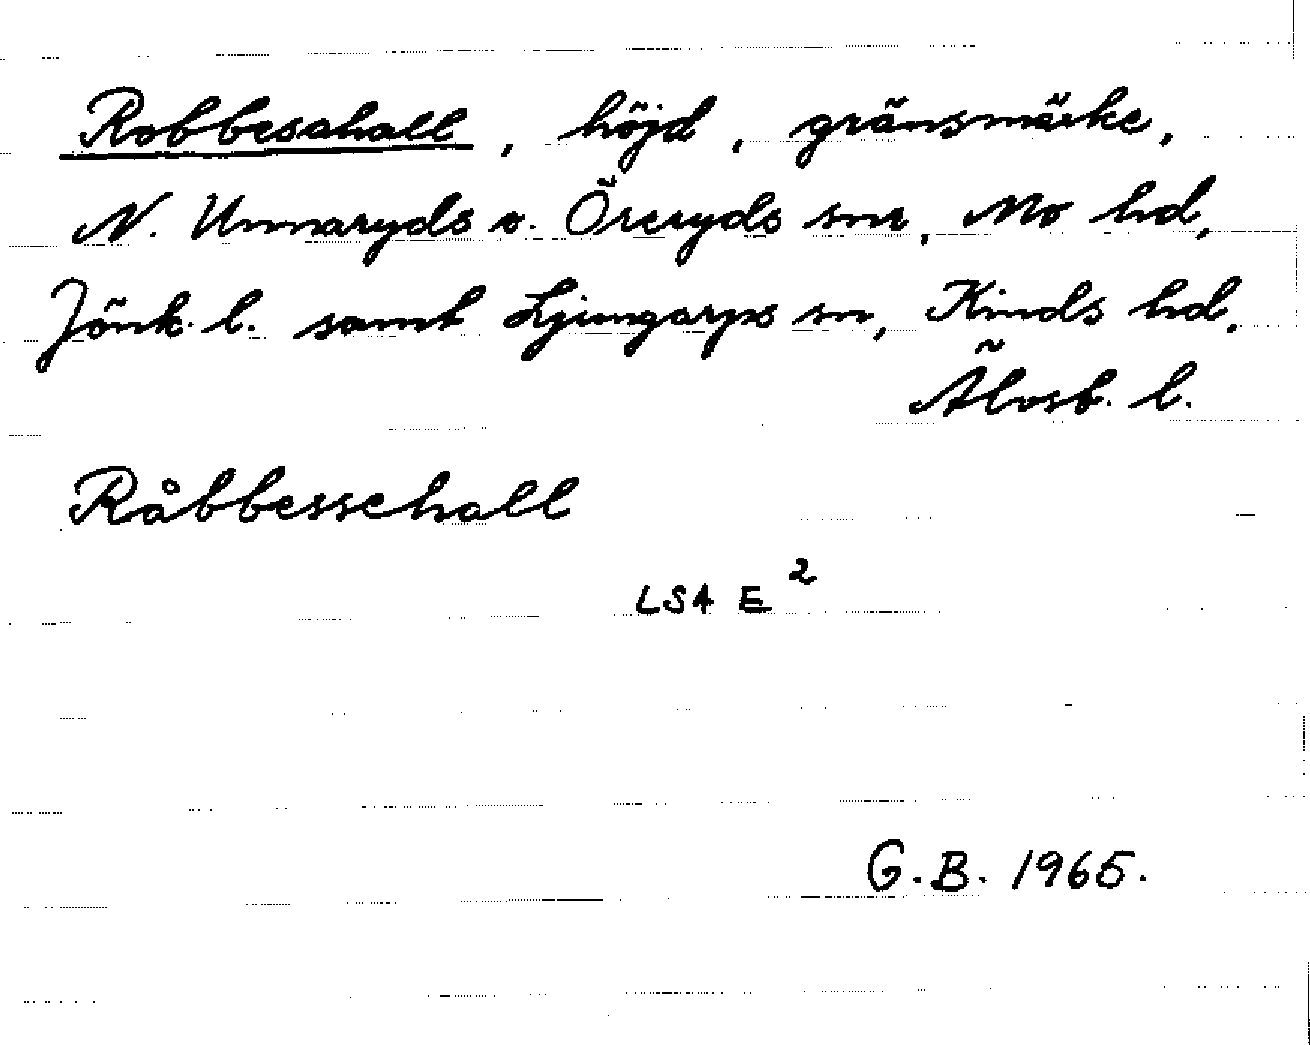 Robbesahall, höjd, gränsmärke,
N. Unnaryds o. Öreryds snr, Mo hd,
Jönk. l. samt Ljungarps sn, Kinds hd,
Älvsb. l.
Råbbessehall
LSA E 2
G.B. 1965.